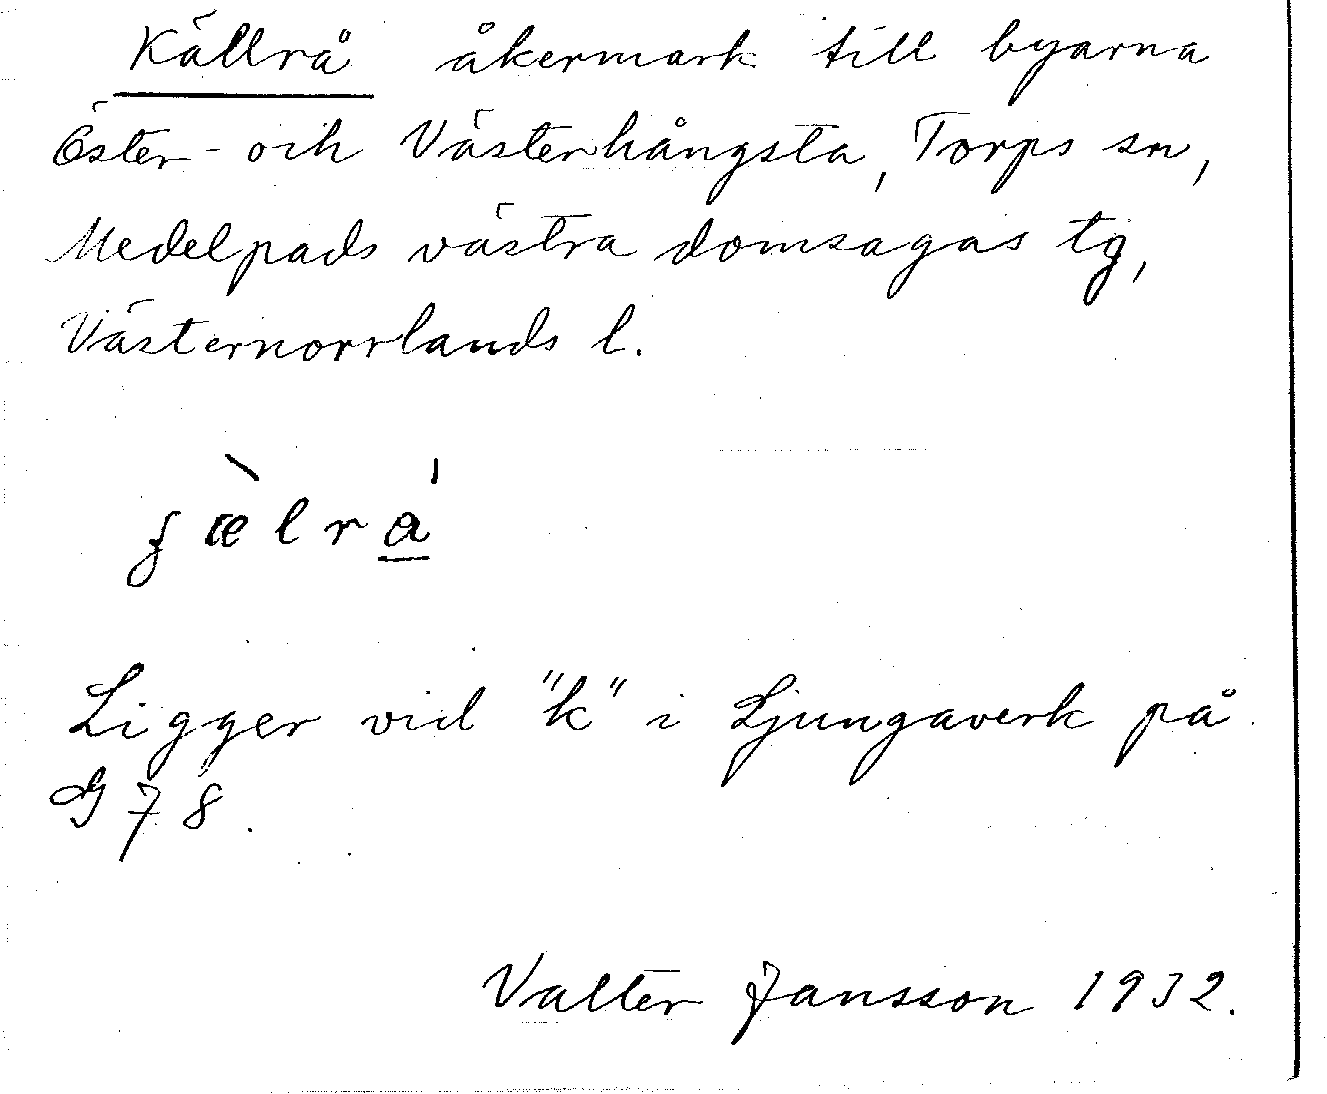 Källrå åkermark till byarna
Öster- och Västerhångsta, Torps sn,
Medelpads västra domsagas tg,
Västernorrlands l.
Ligger vid "k" i Ljungaverk på
G 78.
Valter Jansson 1932.